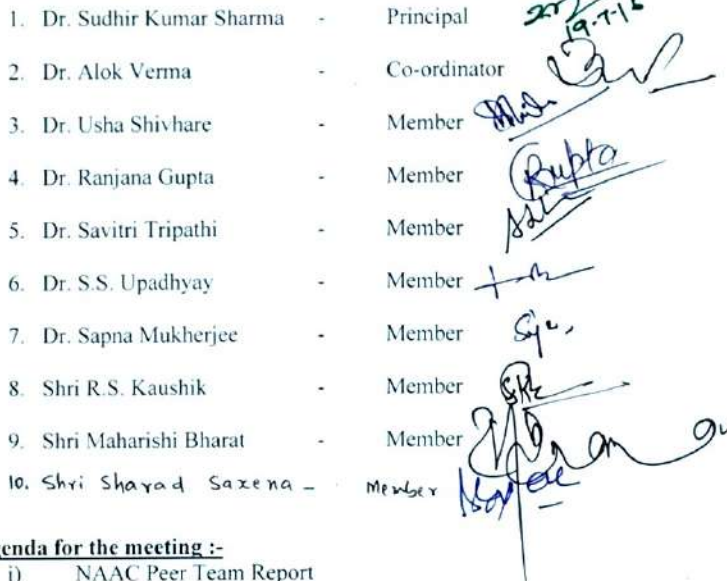 1. Dr. Sudhir Kumar Sharma - Principal
19-7-15
2. Dr. Alok Verma - Co-ordinator
3. Dr. Usha Shivhare - Member
4. Dr. Ranjana Gupta - Member RGupta
5. Dr. Savitri Tripathi - Member
6. Dr. S.S. Upadhyay - Member
7. Dr. Sapna Mukherjee - Member
8. Shri R.S. Kaushik - Member
9. Shri Maharishi Bharat - Member
10. Shri Sharad Saxena - Member
enda for the meeting :-
i) NAAC Peer Team Report